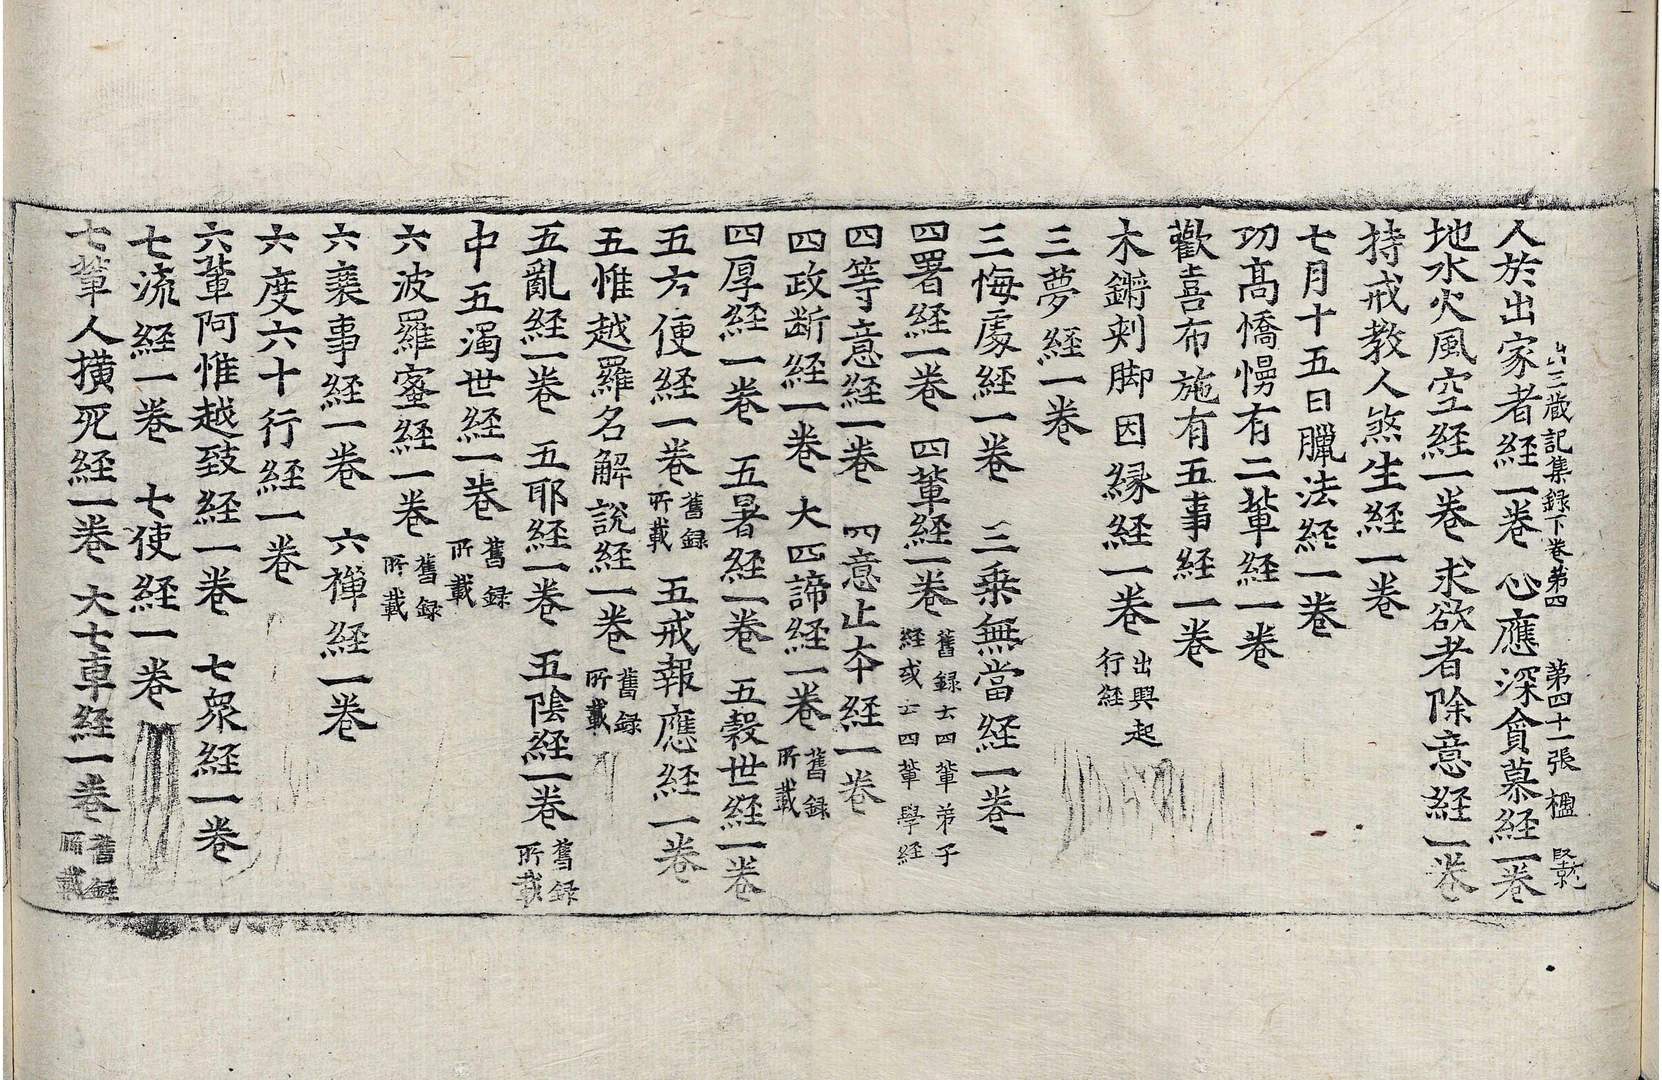 出三蔵記集録下巻第四　第四十一張　楹
人於出家者経一巻　心應深貪慕経一巻
地水火風空経一巻　求欲者除意経一巻
持戒教人煞生経一巻
七月十五日臘法経一巻
功髙憍慢有二輩経一巻
歡喜布施有五事経一巻
木鏘刾脚因縁経一巻 出興起行経
三夢経一巻
三悔處経一巻　三乗無當経一巻
四署経一巻　四輩経一巻 舊録云四輩弟子経或云四輩學経
四等意経一巻　四意止本経一巻
四政断経一巻　大四諦経一巻 舊録所載
四厚経一巻　五暑経一巻　五穀世経一巻
五方便経一巻 舊録所載　五戒報應経一巻
五惟越羅名解説経一巻 舊録所載
五亂経一巻　五耶経一巻　五陰経一巻 舊録所載
中五濁世経一巻 舊録所載
六波羅蜜経一巻 舊録所載
六衰事経一巻　六禅経一巻
六度六十行経一巻
六輩阿惟越致経一巻　七衆経一巻
七流経一巻　七使経一巻
七輩人撗死経一巻　大七車経一巻 舊録所載